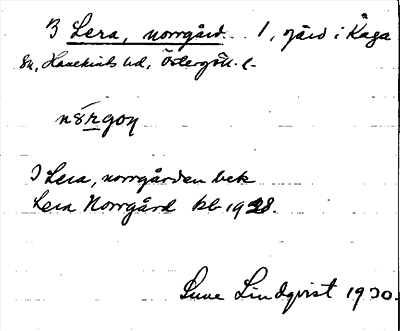 B Lera, norrgård. 1, gård i Kaga
sn, Hanekinds hd, Östergötl. l.
nǫ̈rgoɳ
I Lera, norrgården bek
Lera Norrgård kb 1928.
Sune Lindqvist 1930.